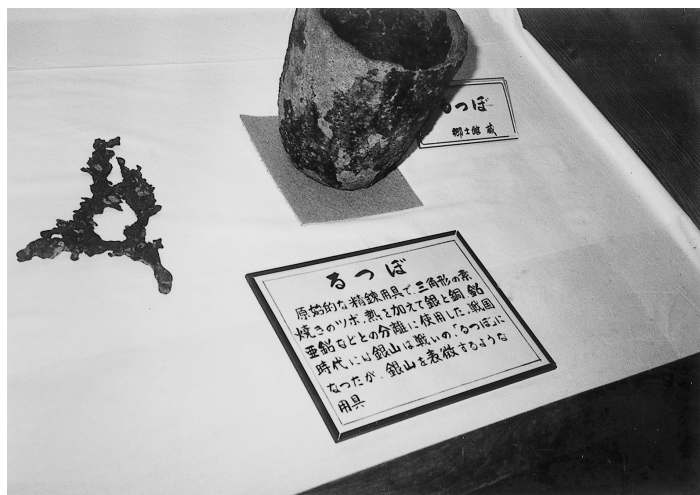 るつぼ
郷土館 蔵
るつぼ
原始的な精錬用具で、三角形の素
焼きのツボ、熱を加えて銀と銅、鉛
亜鉛などとの分離に使用した。戦国
時代には銀山は戦いの「るつぼ」に
なつたが、銀山を表徴するような
用具